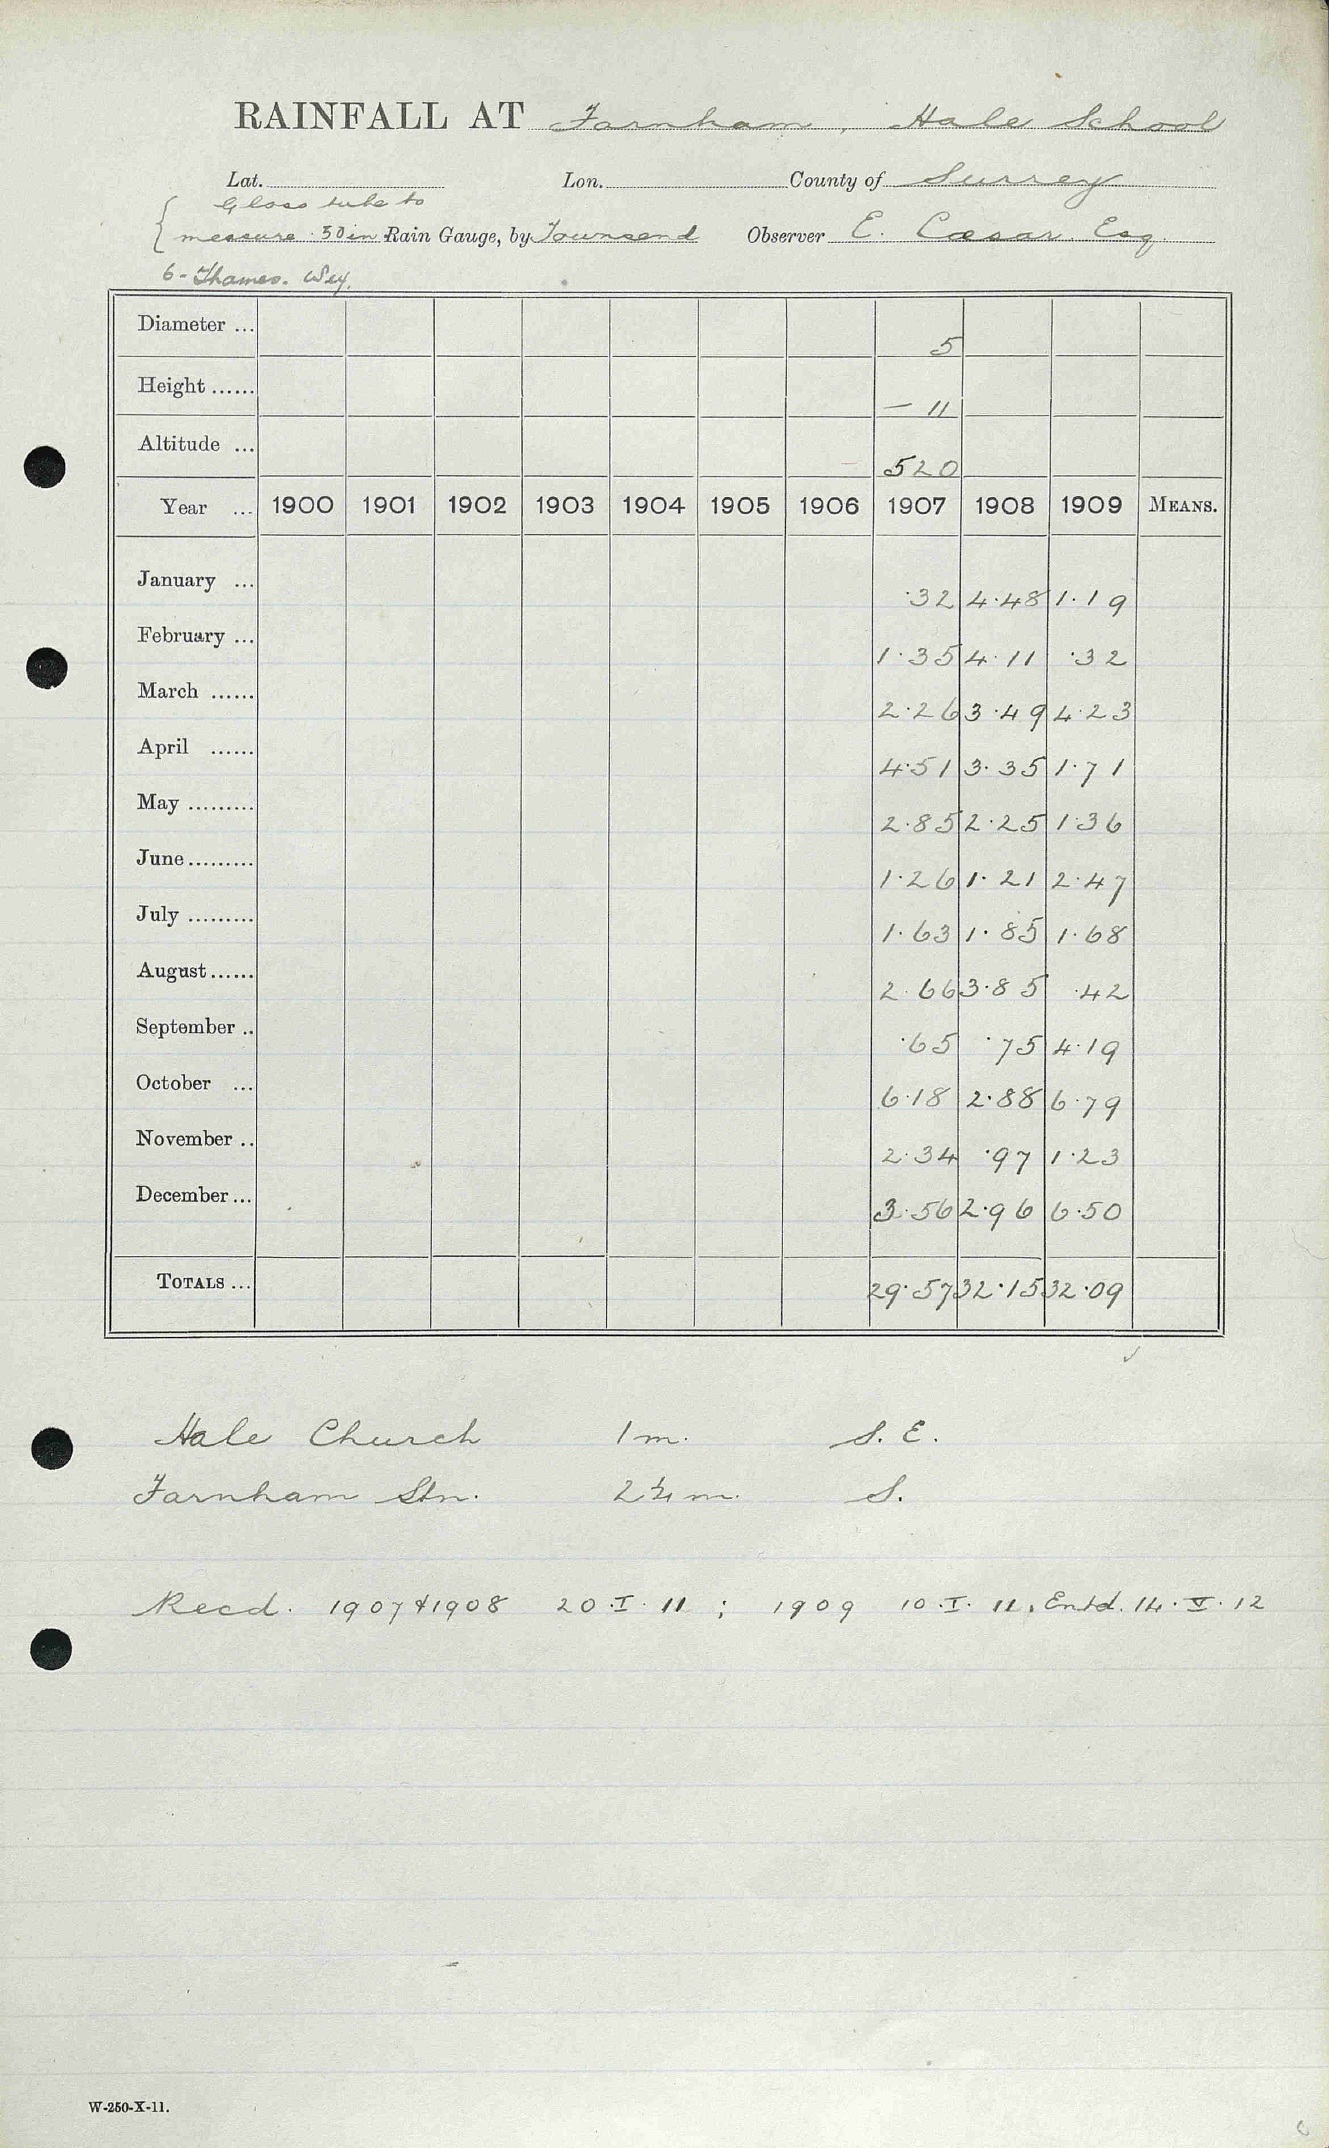 RAINFALL AT Farnham, Hale School
Lat. Lon. County of Surrey
Glass tube to
measure .50 in Rain Gauge, by Townsend Observer E. Cæsar Esq.
6 - Thames. Wey.
Diameter ... 5
Height ...... — 11
Altitude ... 520
Year ... 1900 1901 1902 1903 1904 1905 1906 1907 1908 1909 MEANS.
January ... ·32 4·48 1·19
February ... 1·35 4·11 ·32
March ...... 2·26 3·49 4·23
April ...... 4·51 3·35 1·71
May ......... 2·85 2·25 1·36
June ......... 1·26 1·21 2·47
July ......... 1·63 1·85 1·68
August ...... 2·66 3·85 ·42
September .. ·65 ·75 4·19
October ... 6·18 2·88 6·79
November .. 2·34 ·97 1·23
December ... 3·56 2·96 6·50
TOTALS ... 29·57 32·15 32·09
Hale Church 1 m. S. E.
Farnham Stn. 2¼ m. S.
Recd. 1907 & 1908 20·I·11 ; 1909 10·I·11, Entd. 14·V·12
W-250-X-11.